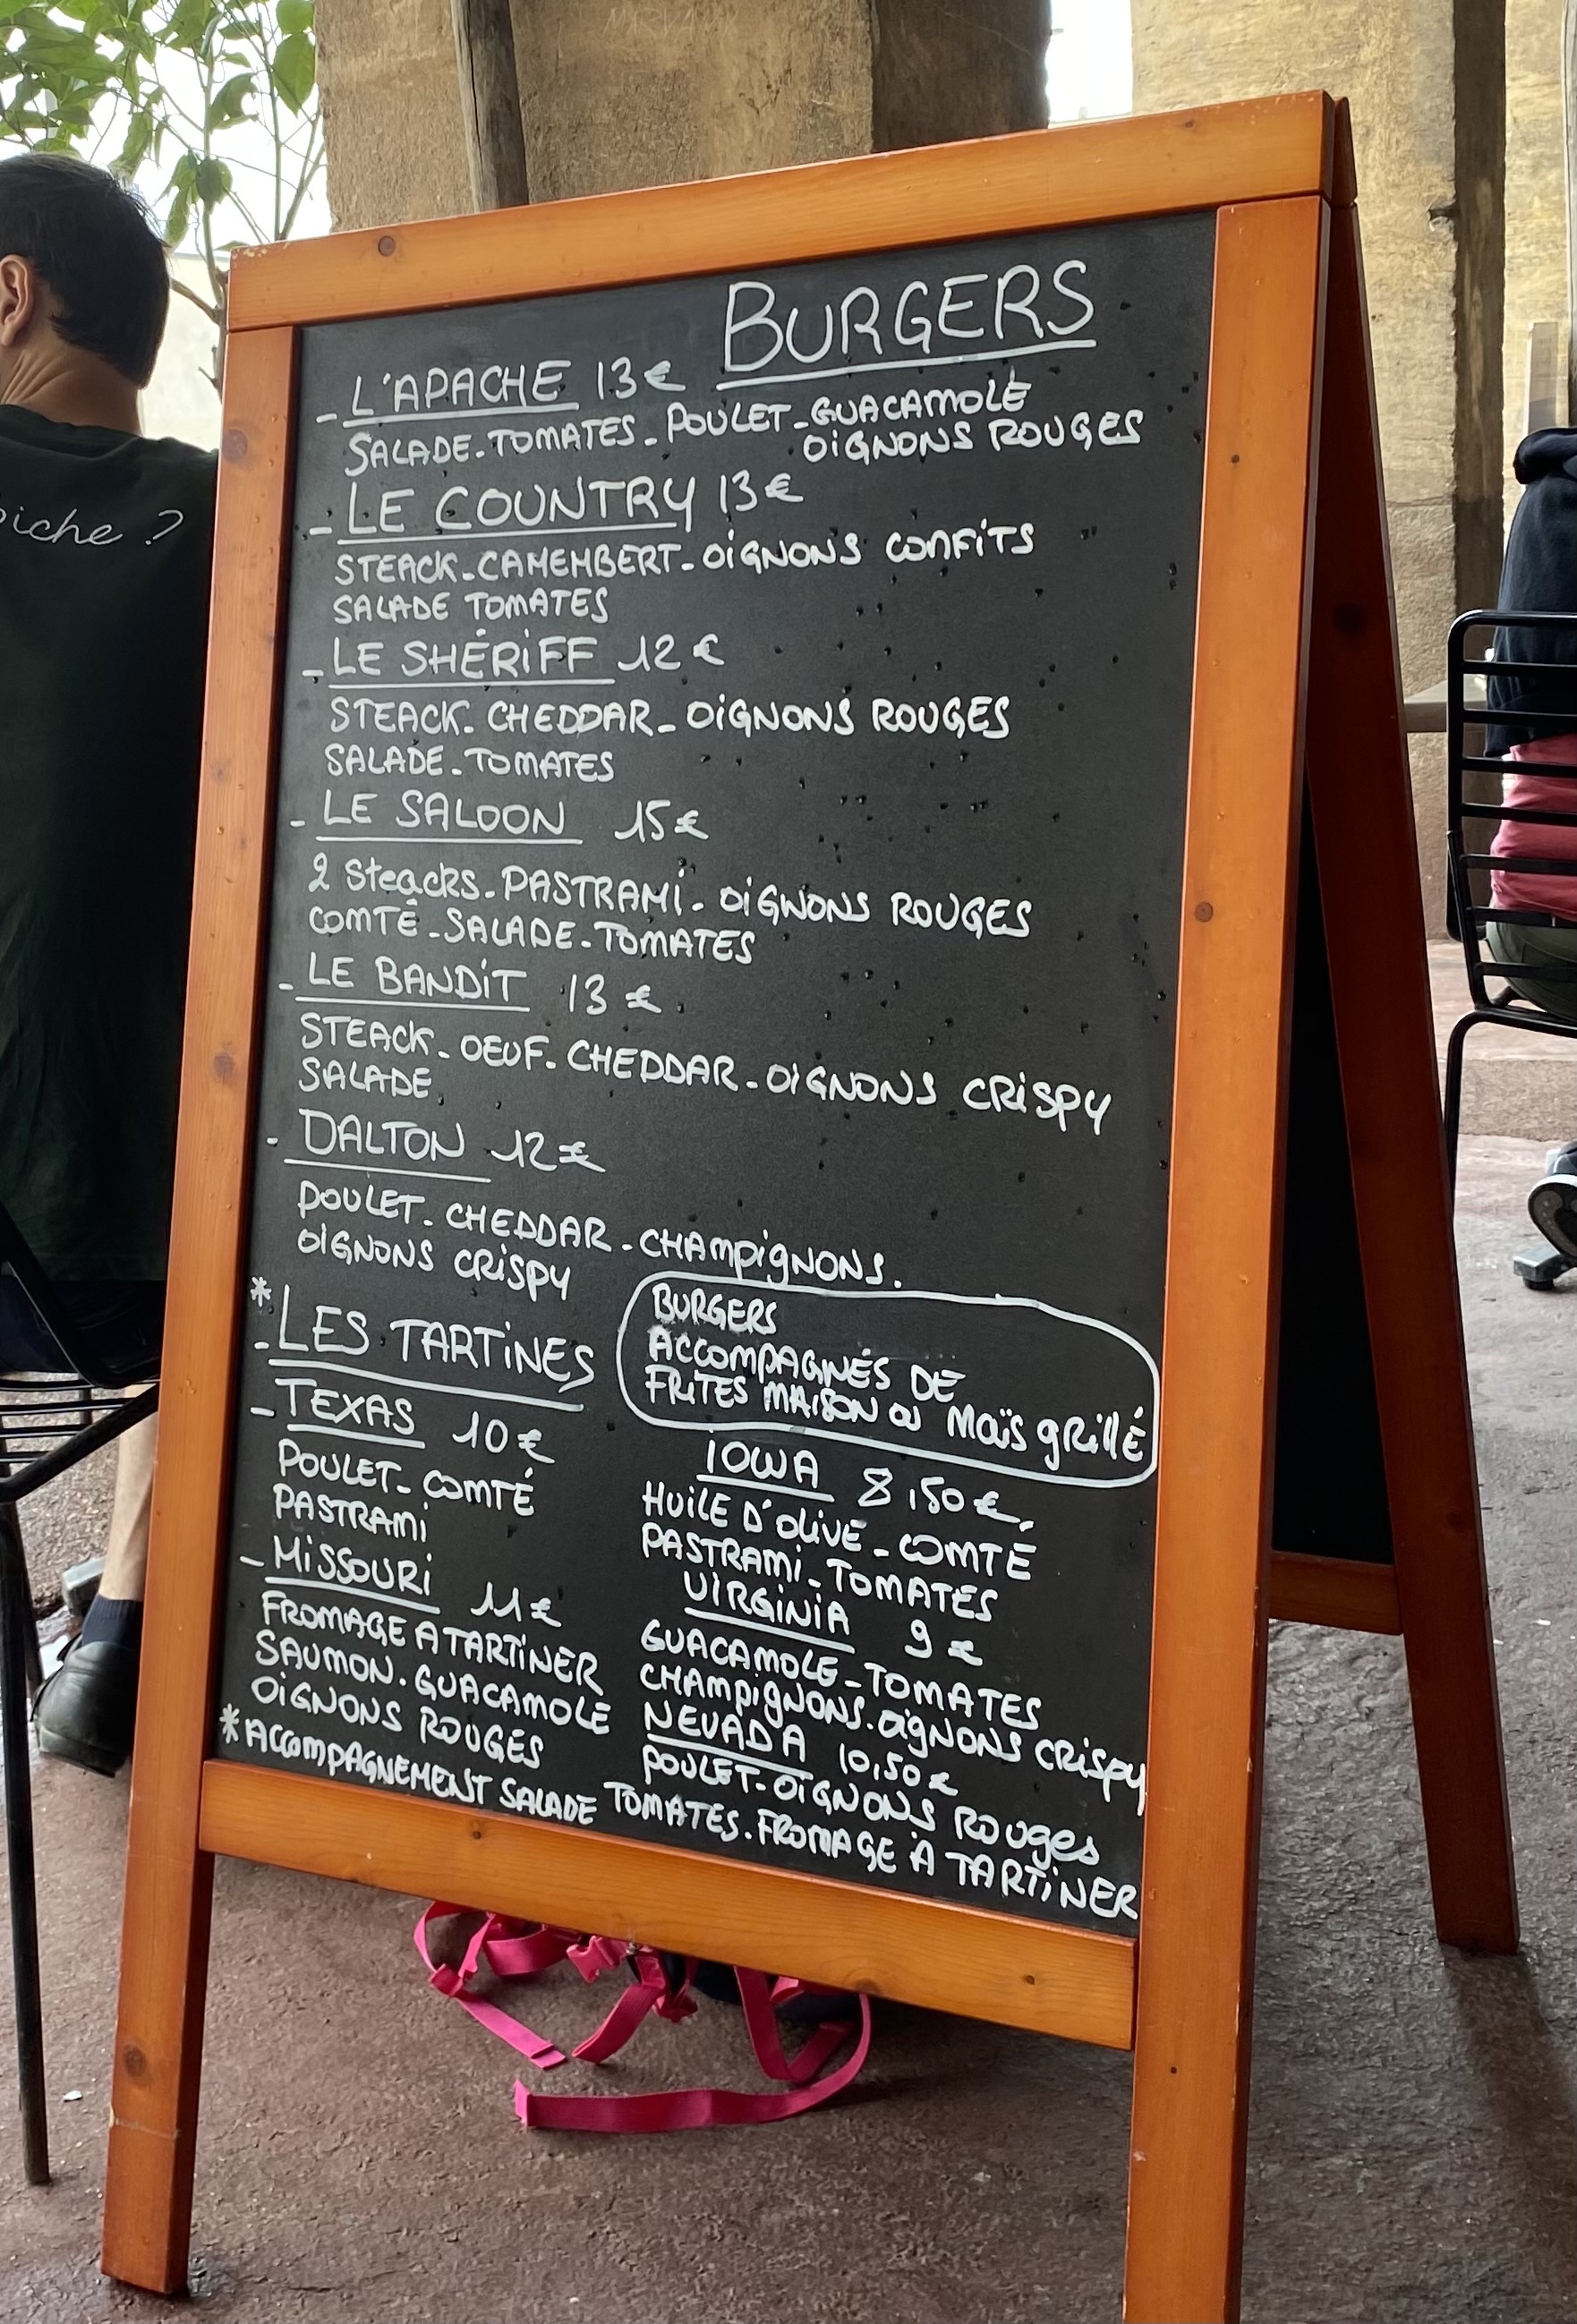 BURGERS
- L'APACHE 13€
SALADE-TOMATES-POULET-GUACAMOLE
OIGNONS ROUGES
- LE COUNTRY 13€
STEACK-CAMEMBERT-OIGNONS CONFITS
SALADE TOMATES
- LE SHÉRIFF 12€
STEACK-CHEDDAR-OIGNONS ROUGES
SALADE-TOMATES
- LE SALOON 15€
2 Steacks-PASTRAMI-OIGNONS ROUGES
COMTÉ-SALADE-TOMATES
- LE BANDIT 13€
STEACK-OEUF-CHEDDAR-OIGNONS CRISPY
SALADE
- DALTON 12€
POULET-CHEDDAR-CHAMPIGNONS.
OIGNONS CRISPY
* - LES TARTINES
BURGERS
ACCOMPAGNÉS DE
FRITES MAISON OU MAÏS GRILLÉ
- TEXAS 10€
POULET-COMTÉ
PASTRAMI
- MISSOURI 11€
FROMAGE A TARTINER
SAUMON-GUACAMOLE
OIGNONS ROUGES
IOWA 8,50€
HUILE D'OLIVE-COMTÉ
PASTRAMI-TOMATES
VIRGINIA 9€
GUACAMOLE-TOMATES
CHAMPIGNONS-OIGNONS CRISPY
NEVADA 10,50€
POULET-OIGNONS ROUGES
TOMATES-FROMAGE À TARTINER
* ACCOMPAGNEMENT SALADE
iche ?